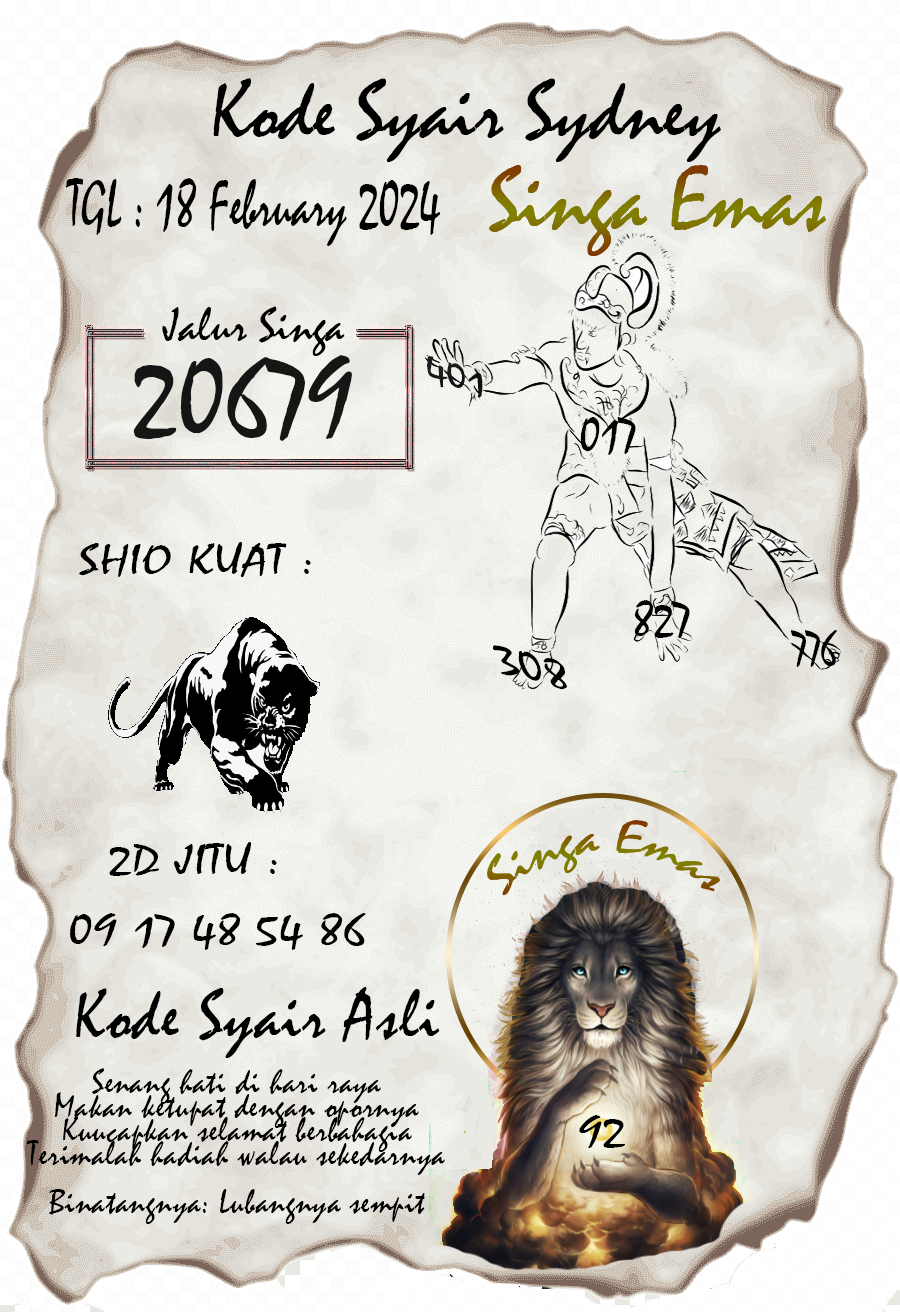 Kode Syair Sydney
TGL : 18 February 2024
Singa Emas
Jalur Singa
20679
401
017
SHIO KUAT :
827
776
308
Singa Emas
2D JITU :
09 17 48 54 86
Kode Syair Asli
Senang hati di hari raya
Makan ketupat dengan opornya
Kuucapkan selamat berbahagia
Terimalah hadiah walau sekedarnya
92
Binatangnya: Lubangnya sempit